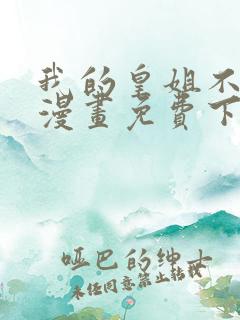 我的皇姐不
漫畫免費下
哑巴的绅士
未经同意禁止转载